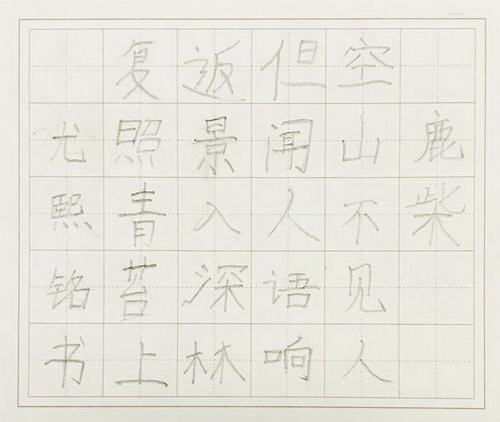 鹿柴
空山不见人
但闻人语响
返景入深林
复照青苔上
尤熙铭书